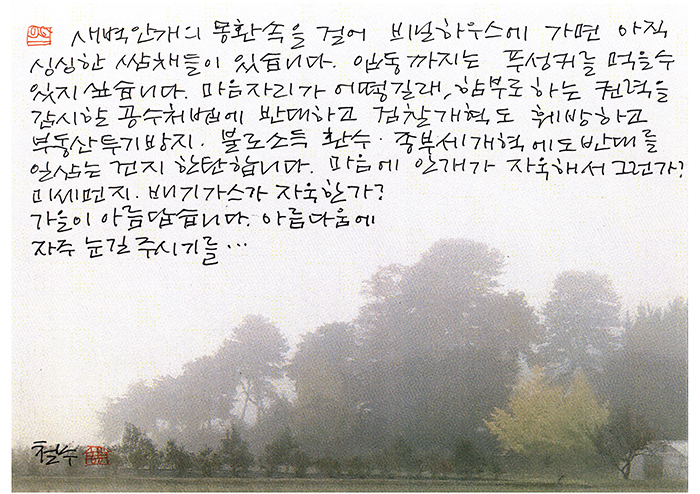 새벽안개의 몽환속을 걸어 비닐하우스에 가면 아직
싱싱한 쌈채들이 있습니다. 입동까지는 푸성귀를 먹을수
있지 싶습니다. 마음자리가 어떻길래, 함부로하는 권력을
감시할 공수처법에 반대하고 검찰개혁도 훼방하고
부동산투기방지·불로소득 환수·종부세개혁에도반대를
일삼는 건지 한탄합니다. 마음에 안개가 자욱해서 그런가?
미세먼지·배기가스가 자욱한가?
가을이 아름답습니다. 아름다움에
자주 눈길 주시기를…
철수